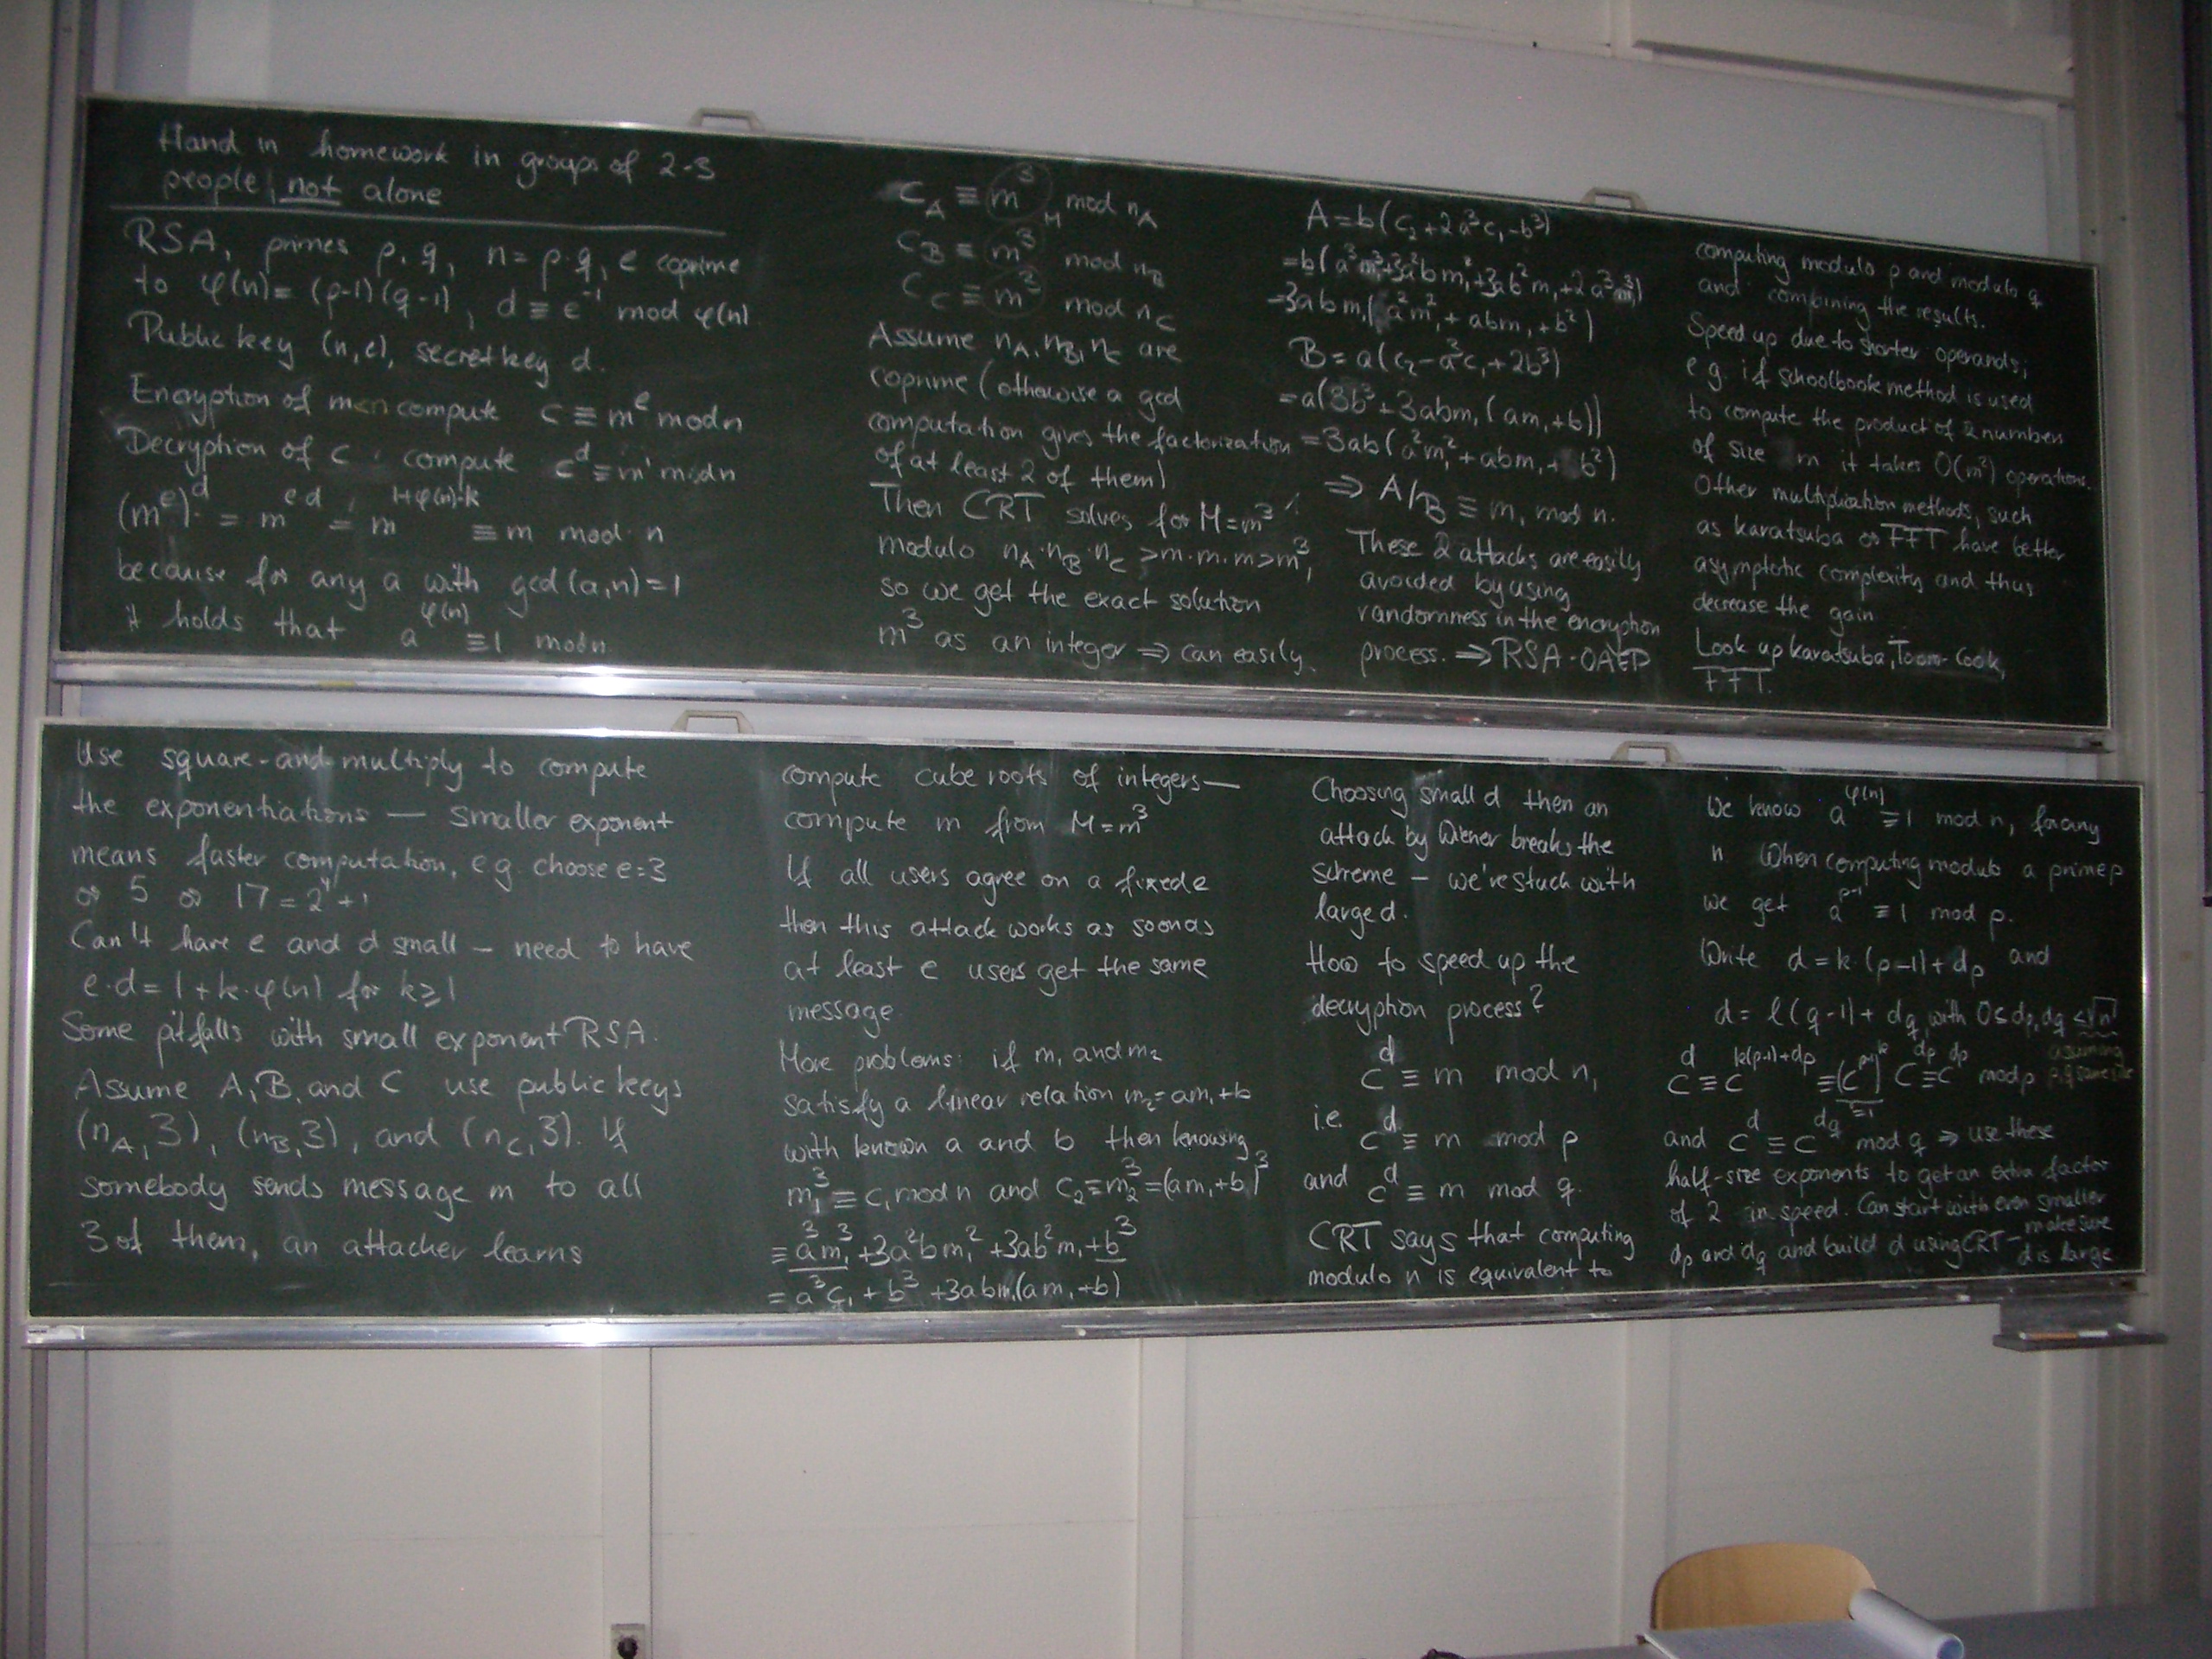 Hand in homework in groups of 2-3
people, not alone
RSA, primes p, q, n = p·q, e coprime
to φ(n) = (p-1)(q-1), d ≡ e⁻¹ mod φ(n)
Public key (n,e), secret key d.
Encryption of m<n compute c ≡ m^e mod n
Decryption of c : compute c^d ≡ m' mod n
(m^e)^d = m^{ed} = m^{1+φ(n)·k} ≡ m mod n
because for any a with gcd(a,n)=1
it holds that a^{φ(n)} ≡ 1 mod n.
Use square-and-multiply to compute
the exponentiations — smaller exponent
means faster computation, e.g. choose e=3
or 5 or 17 = 2⁴+1
Can't have e and d small – need to have
e·d = 1+k·φ(n) for k≥1
Some pitfalls with small exponent RSA.
Assume A, B, and C use public keys
(n_A,3), (n_B,3), and (n_C,3). If
somebody sends message m to all
3 of them, an attacker learns
C_A ≡ m³ mod n_A
M
C_B ≡ m³ mod n_B
C_C ≡ m³ mod n_C
Assume n_A, n_B, n_C are
coprime (otherwise a gcd
computation gives the factorization
of at least 2 of them)
Then CRT solves for M=m³
modulo n_A·n_B·n_C > m·m·m > m³,
so we get the exact solution
m³ as an integer ⇒ can easily
compute cube roots of integers —
compute m from M=m³
If all users agree on a fixed e
then this attack works as soon as
at least e users get the same
message
More problems: if m₁ and m₂
satisfy a linear relation m₂=am₁+b
with known a and b then knowing
m₁³ ≡ c₁ mod n and c₂ ≡ m₂³ = (am₁+b)³
≡ a³m₁³ + 3a²bm₁² + 3ab²m₁ + b³
= a³c₁ + b³ + 3abm₁(am₁+b)
A = b(c₂+2a³c₁-b³)
= b(a³m₁³+3a²bm₁²+3ab²m₁+2a³m₁³)
=3abm₁(a²m₁²+abm₁+b²)
B = a(c₂-a³c₁+2b³)
= a(3b³+3abm₁(am₁+b))
= 3ab(a²m₁²+abm₁+b²)
⇒ A/B ≡ m₁ mod n.
These 2 attacks are easily
avoided by using
randomness in the encryption
process. ⇒ RSA-OAEP
Choosing small d then an
attack by Wiener breaks the
scheme – we're stuck with
large d.
How to speed up the
decryption process?
c^d ≡ m mod n,
i.e. c^d ≡ m mod p
and c^d ≡ m mod q.
CRT says that computing
modulo n is equivalent to
computing modulo p and modulo q
and combining the results.
Speed up due to shorter operands;
e.g. if schoolbook method is used
to compute the product of 2 numbers
of size m it takes O(m²) operations.
Other multiplication methods, such
as karatsuba or FFT have better
asymptotic complexity and thus
decrease the gain
Look up karatsuba, Toom-Cook,
FFT.
We know a^{φ(n)} ≡ 1 mod n, for any
n When computing modulo a prime p
we get a^{p-1} ≡ 1 mod p.
Write d = k·(p-1)+d_p and
d = l(q-1)+d_q with 0≤d_p,d_q<√n
c^d ≡ c^{k(p-1)+d_p} ≡ (c^{p-1})^k c^{d_p} ≡ c^{d_p} mod p assuming p,q same size
≡1
and c^d ≡ c^{d_q} mod q ⇒ use these
half-size exponents to get an extra factor
of 2 in speed. Can start with even smaller
d_p and d_q and build d using CRT – make sure
d is large